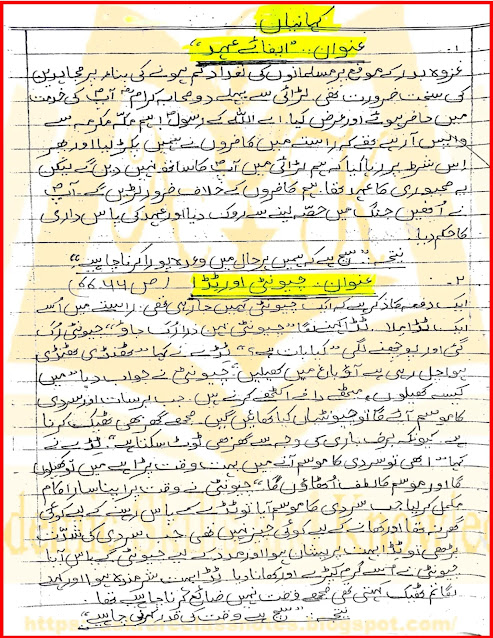 کہانیاں
۱۔ عنوان:۔ "ایفائے عہد"
غزوہ بدر کے موقع پر مسلمانوں کی تعداد کم ہونے کی بناء پر مجاہدین
کی سخت ضرورت تھی۔ لڑائی سے پہلے دو صحابہ کرامؓ آپؐ کی خدمت
میں حاضر ہوئے اور عرض کیا، اے اللہ کے رسولؐ! ہم مکہ مکرمہ سے
واپس آ رہے تھے کہ راستے میں کافروں نے ہمیں پکڑ لیا اور پھر
اس شرط پر رہا کیا کہ ہم لڑائی میں آپؐ کا ساتھ نہیں دیں گے لیکن
یہ مجبوری کا عہد تھا۔ ہم کافروں کے خلاف ضرور لڑیں گے۔ آپؐ
نے اُنھیں جنگ میں حصّہ لینے سے روک دیا اور عہد کی پاس داری
کا حکم دیا۔
نتیجہ:۔ "سچ ہے کہ ہمیں ہر حال میں وعدہ پورا کرنا چاہیے"
۲۔ عنوان:۔ چیونٹی اور ٹڈا (ص ۶۶،۴۴)
ایک دفعہ کا ذکر ہے کہ ایک چیونٹی کہیں جا رہی تھی۔ راستے میں اُسے
ایک ٹڈا ملا۔ ٹڈا کہنے لگا "چیونٹی بہن ذرا رُک جاؤ" چیونٹی رُک
گئی اور پوچھنے لگی "کیا بات ہے؟" ٹڈے نے کہا "ٹھنڈی ٹھنڈی
ہوا چل رہی ہے آؤ باغ میں کھیلیں" چیونٹی نے جواب دیا "میں
کیسے کھیلوں، میٹھے دانے اکٹھے کرنے ہیں۔ جب برسات اور سردی
کا موسم آئے گا تو چیونٹیاں کیا کھائیں گی۔ مجھے گھر بھی ٹھیک کرنا
ہے۔ کیونکہ برف باری کی وجہ سے گھر بھی ٹوٹ سکتا ہے" ٹڈے نے
کہا "ابھی تو سردی کا موسم آنے میں بہت وقت پڑا ہے میں تو کھیلوں
گا اور موسم کا لطف اُٹھاؤں گا" چیونٹی نے وقت پر اپنا سارا کام
مکمل کر لیا۔ جب سردی کا موسم آیا تو ٹڈے کے پاس رہنے کے لیے کوئی
گھر نہ تھا اور کھانے کے لیے کوئی چیز نہیں تھی۔ جب سردی کی شدّت
بڑھی تو ٹڈا بہت پریشان ہوا اور مدد کے لیے چیونٹی کے پاس آیا
چیونٹی نے اُسے گرم کپڑے اور کھانا دیا۔ ٹڈا بہت شرمندہ ہوا اور کہنے
لگا تم ٹھیک کہتی تھی مجھے وقت نہیں ضائع کرنا چاہیے تھا۔
نتیجہ:۔ "سچ ہے وقت کی قدر کرنی چاہیے"